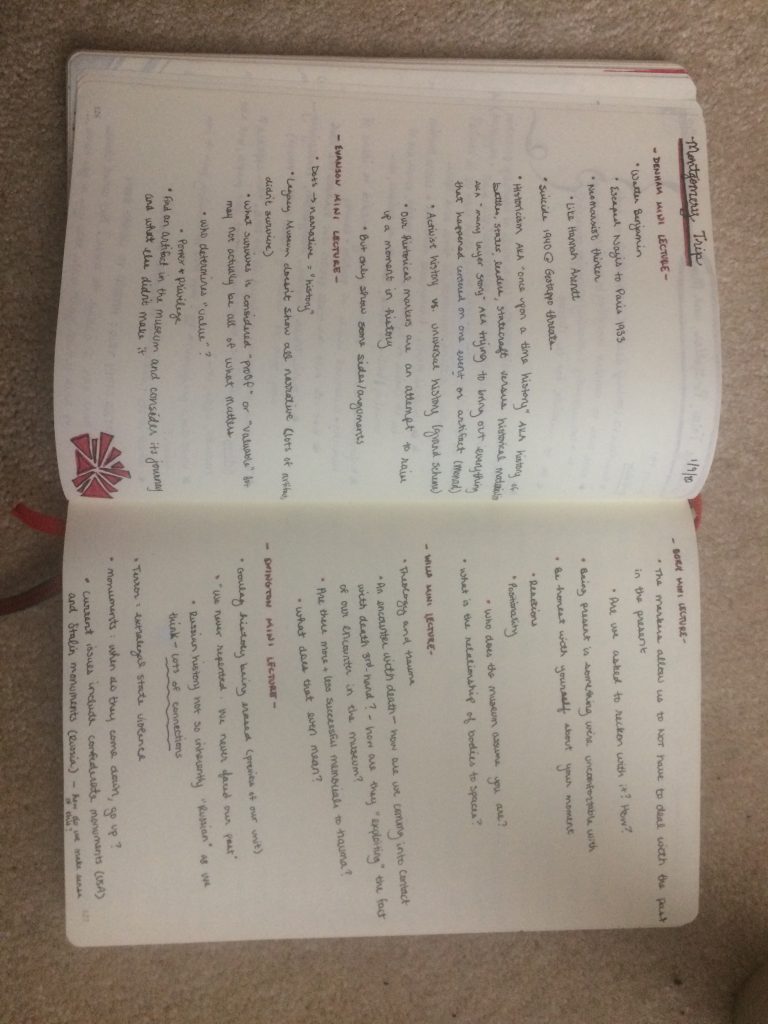 Montgomery Trip
1/9/18
- DENHAM MINI LECTURE -
• Walter Benjamin
• Escaped Nazis to Paris 1933
• Neomarxist thinker
• Like Hannah Arendt
• Suicide 1940 @ Gestapo threats
• Historicism AKA "once upon a time history" AKA history of
battles, states, leaders, statecraft versus historical materialism
AKA "many layer story" AKA trying to bring out everything
that happened centered on one event or artifact (monad)
• Activist history vs. universal history (grand scheme)
• Our historical markers are an attempt to raise
up a moment in history
• But only show some sides/arguments
- EVANSON MINI LECTURE -
• Dots → narrative = "history"
• Legacy Museum doesn't show all narrative (lots of artifacts
didn't survive)
• What survives is considered "proof" or "valuable" but
may not actually be all of what matters
• Who determines "value"?
• Power + Privilege
• Find an artifact in the museum and consider its journey
and what else didn't make it
121
- BORY MINI LECTURE -
• The markers allow us to NOT have to deal with the past
in the present
• Are we asked to reckon with it? How?
• Being present is something we're uncomfortable with
• Be honest with yourself about your moment
• Reactions
• Positionality
• Who does the museum assume you are?
• What is the relationship of bodies to spaces?
- WILLS MINI LECTURE -
• Theology and trauma
• An encounter with death - how are we coming into contact
with death 3rd-hand? - how are they "exploiting" the fact
of our encounter in the museum?
• Are there more + less successful memorials to trauma?
• What does that even mean?
- EWINGTON MINI LECTURE -
• Goulag history being erased (preview of our unit)
"We never repented, we never faced our past"
• Russian history not so inherently "Russian" as we
think - lots of connections
• Terror = extralegal state violence
• Monuments: when do they come down, go up?
• Current issues include confederate monuments (USA)
and Stalin monuments (Russia) - how do we make sense
of evil?